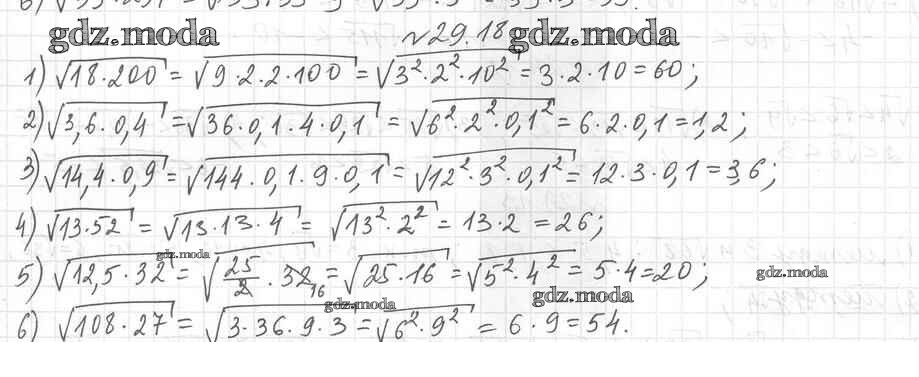 gdz.moda №29.18 gdz.moda
1) √18·200 = √9·2·2·100 = √3²·2²·10² = 3·2·10 = 60;
2) √3,6·0,4 = √36·0,1·4·0,1 = √6²·2²·0,1² = 6·2·0,1 = 1,2;
3) √14,4·0,9 = √144·0,1·9·0,1 = √12²·3²·0,1² = 12·3·0,1 = 3,6;
4) √13·52 = √13·13·4 = √13²·2² = 13·2 = 26;
gdz.moda
5) √12,5·32 = √25/2·32 16 = √25·16 = √5²·4² = 5·4 = 20; gdz.moda
gdz.moda gdz.moda
6) √108·27 = √3·36·9·3 = √6²·9² = 6·9 = 54.
gdz.moda